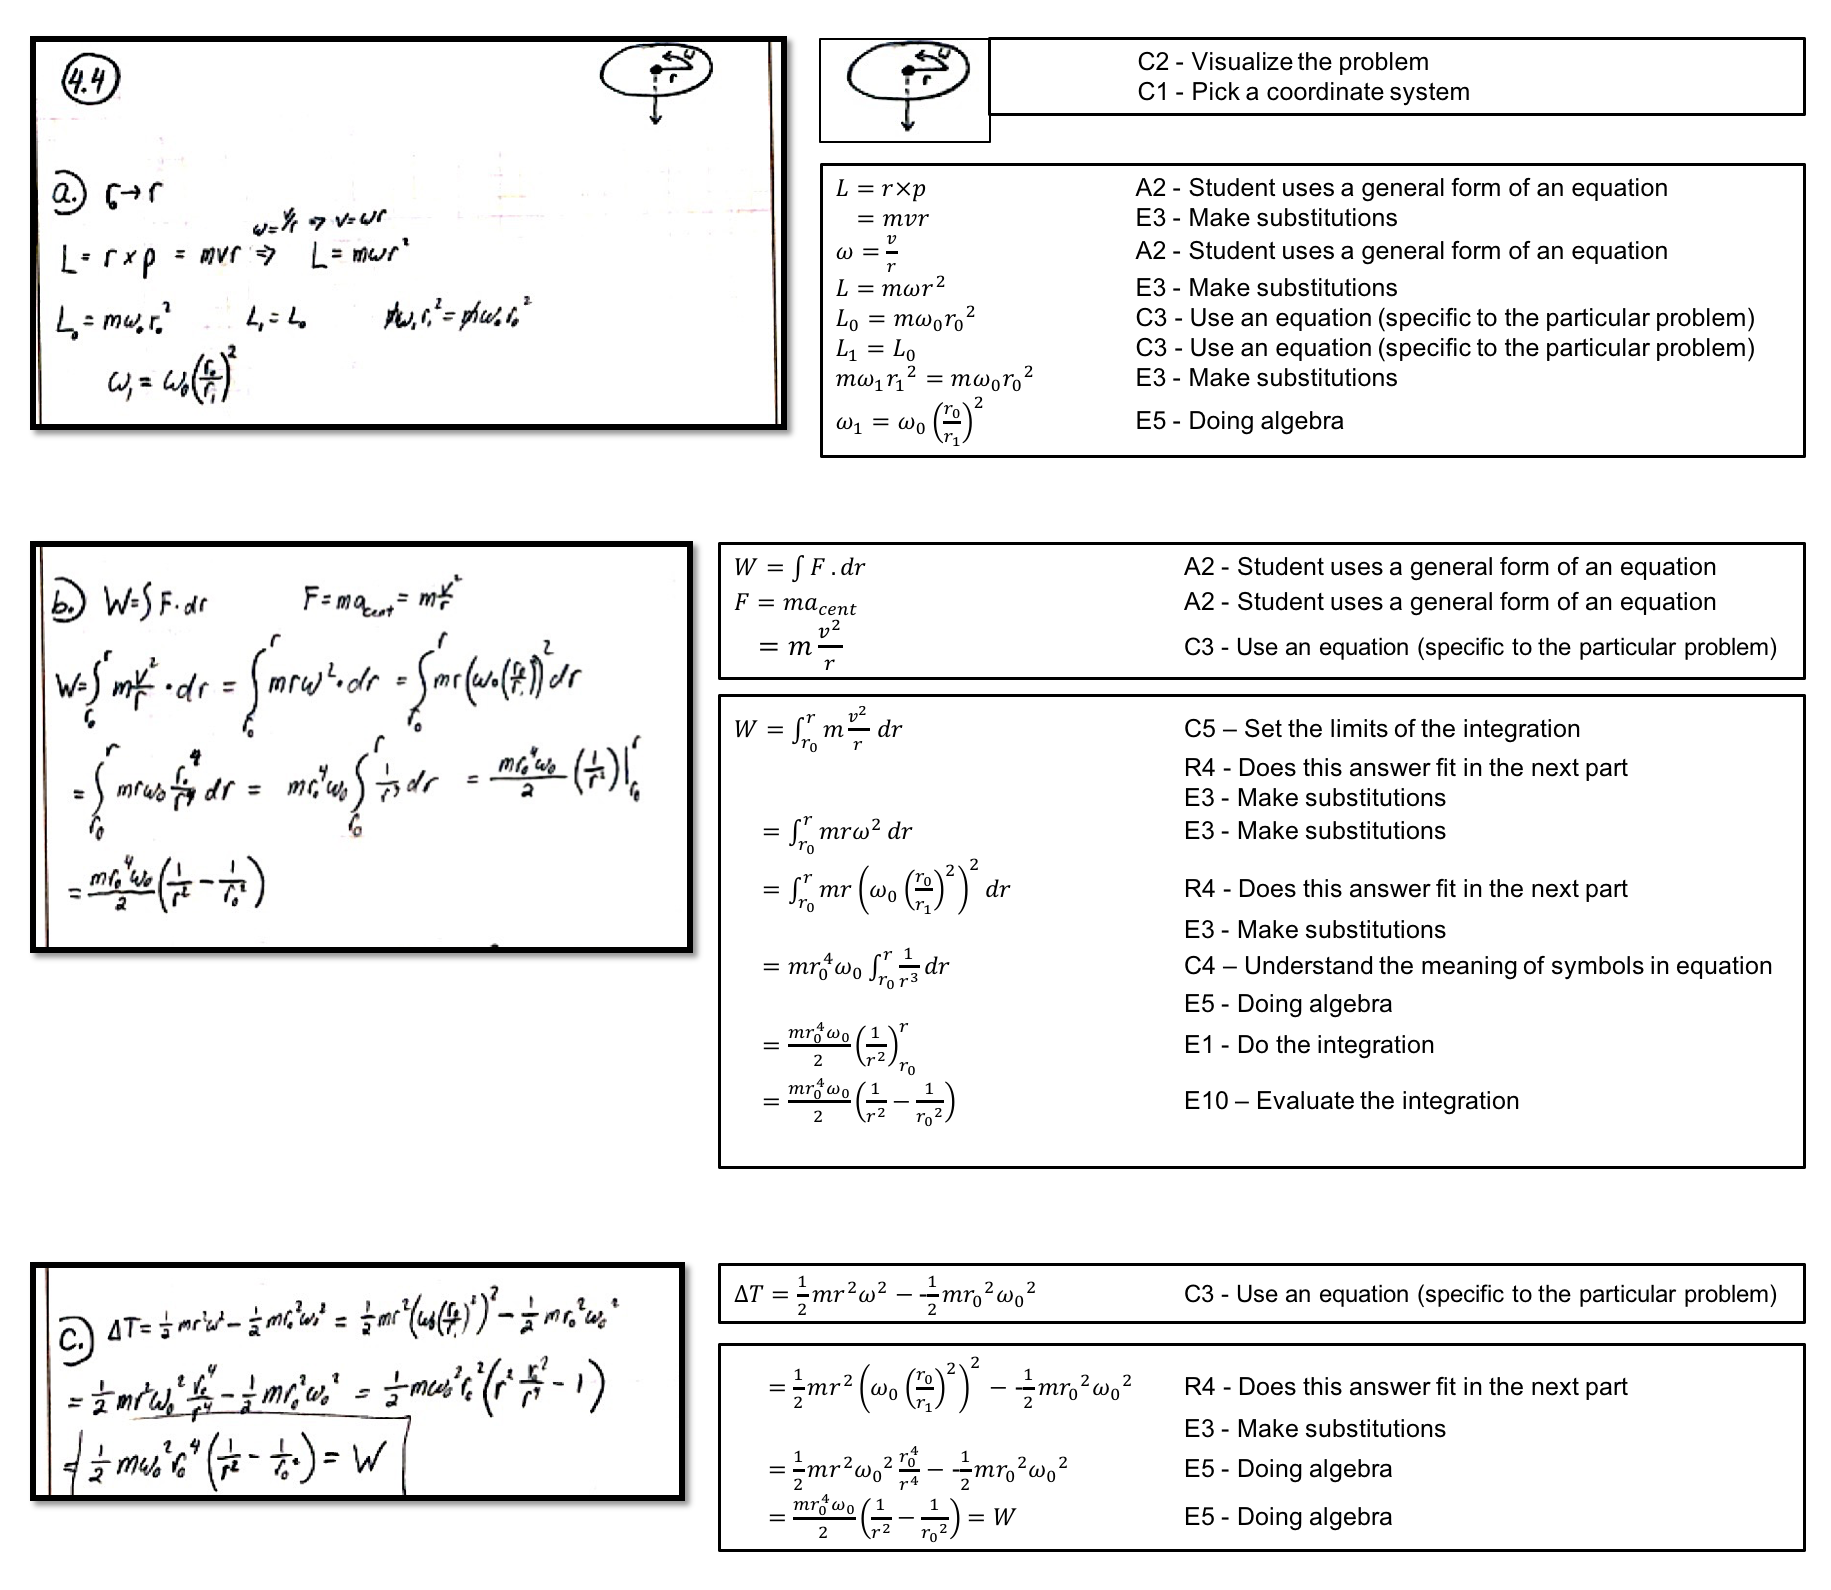 4.4
ω
r
a.) r₀→r
ω=v/r ⇒ v=ωr
L = r × p = mvr ⇒ L = mωr²
L₀ = mω₀r₀² L₁ = L₀ mω₁r₁² = mω₀r₀²
ω₁ = ω₀(r₀/r₁)²
ω
r
C2 - Visualize the problem
C1 - Pick a coordinate system
L = r×p A2 - Student uses a general form of an equation
= mvr E3 - Make substitutions
ω = v/r A2 - Student uses a general form of an equation
L = mωr² E3 - Make substitutions
L₀ = mω₀r₀² C3 - Use an equation (specific to the particular problem)
L₁ = L₀ C3 - Use an equation (specific to the particular problem)
mω₁r₁² = mω₀r₀² E3 - Make substitutions
ω₁ = ω₀ (r₀/r₁)² E5 - Doing algebra
b.) W=∫F·dr F = ma_cent = m v²/r
W=∫_{r₀}^{r} m v²/r · dr = ∫_{r₀}^{r} mrω²·dr = ∫_{r₀}^{r} mr(ω₀(r₀/r₁))² dr
= ∫_{r₀}^{r} mrω₀ r₀⁴/r⁴ dr = mr₀⁴ω₀ ∫_{r₀}^{r} 1/r³ dr = mr₀⁴ω₀/2 (1/r²)|_{r₀}^{r}
= mr₀⁴ω₀/2 (1/r² − 1/r₀²)
W = ∫ F . dr A2 - Student uses a general form of an equation
F = ma_cent A2 - Student uses a general form of an equation
= m v²/r C3 - Use an equation (specific to the particular problem)
W = ∫_{r₀}^{r} m v²/r dr C5 – Set the limits of the integration
R4 - Does this answer fit in the next part
E3 - Make substitutions
= ∫_{r₀}^{r} mrω² dr E3 - Make substitutions
= ∫_{r₀}^{r} mr (ω₀ (r₀/r₁)²)² dr R4 - Does this answer fit in the next part
E3 - Make substitutions
= mr₀⁴ω₀ ∫_{r₀}^{r} 1/r³ dr C4 – Understand the meaning of symbols in equation
E5 - Doing algebra
= mr₀⁴ω₀/2 (1/r²)_{r₀}^{r} E1 - Do the integration
= mr₀⁴ω₀/2 (1/r² − 1/r₀²) E10 – Evaluate the integration
c.) ΔT = ½mr²ω² − ½mr₀²ω₀² = ½mr²(ω₀(r₀/r₁)²)² − ½mr₀²ω₀²
= ½mr²ω₀² r₀⁴/r⁴ − ½mr₀²ω₀² = ½mω₀²r₀²(r² r₀²/r⁴ − 1)
= ½mω₀²r₀⁴(1/r² − 1/r₀²) = W
ΔT = ½mr²ω² − -½mr₀²ω₀² C3 - Use an equation (specific to the particular problem)
= ½mr² (ω₀ (r₀/r₁)²)² − -½mr₀²ω₀² R4 - Does this answer fit in the next part
E3 - Make substitutions
= ½mr²ω₀² r₀⁴/r⁴ − -½mr₀²ω₀² E5 - Doing algebra
= mr₀⁴ω₀/2 (1/r² − 1/r₀²) = W E5 - Doing algebra